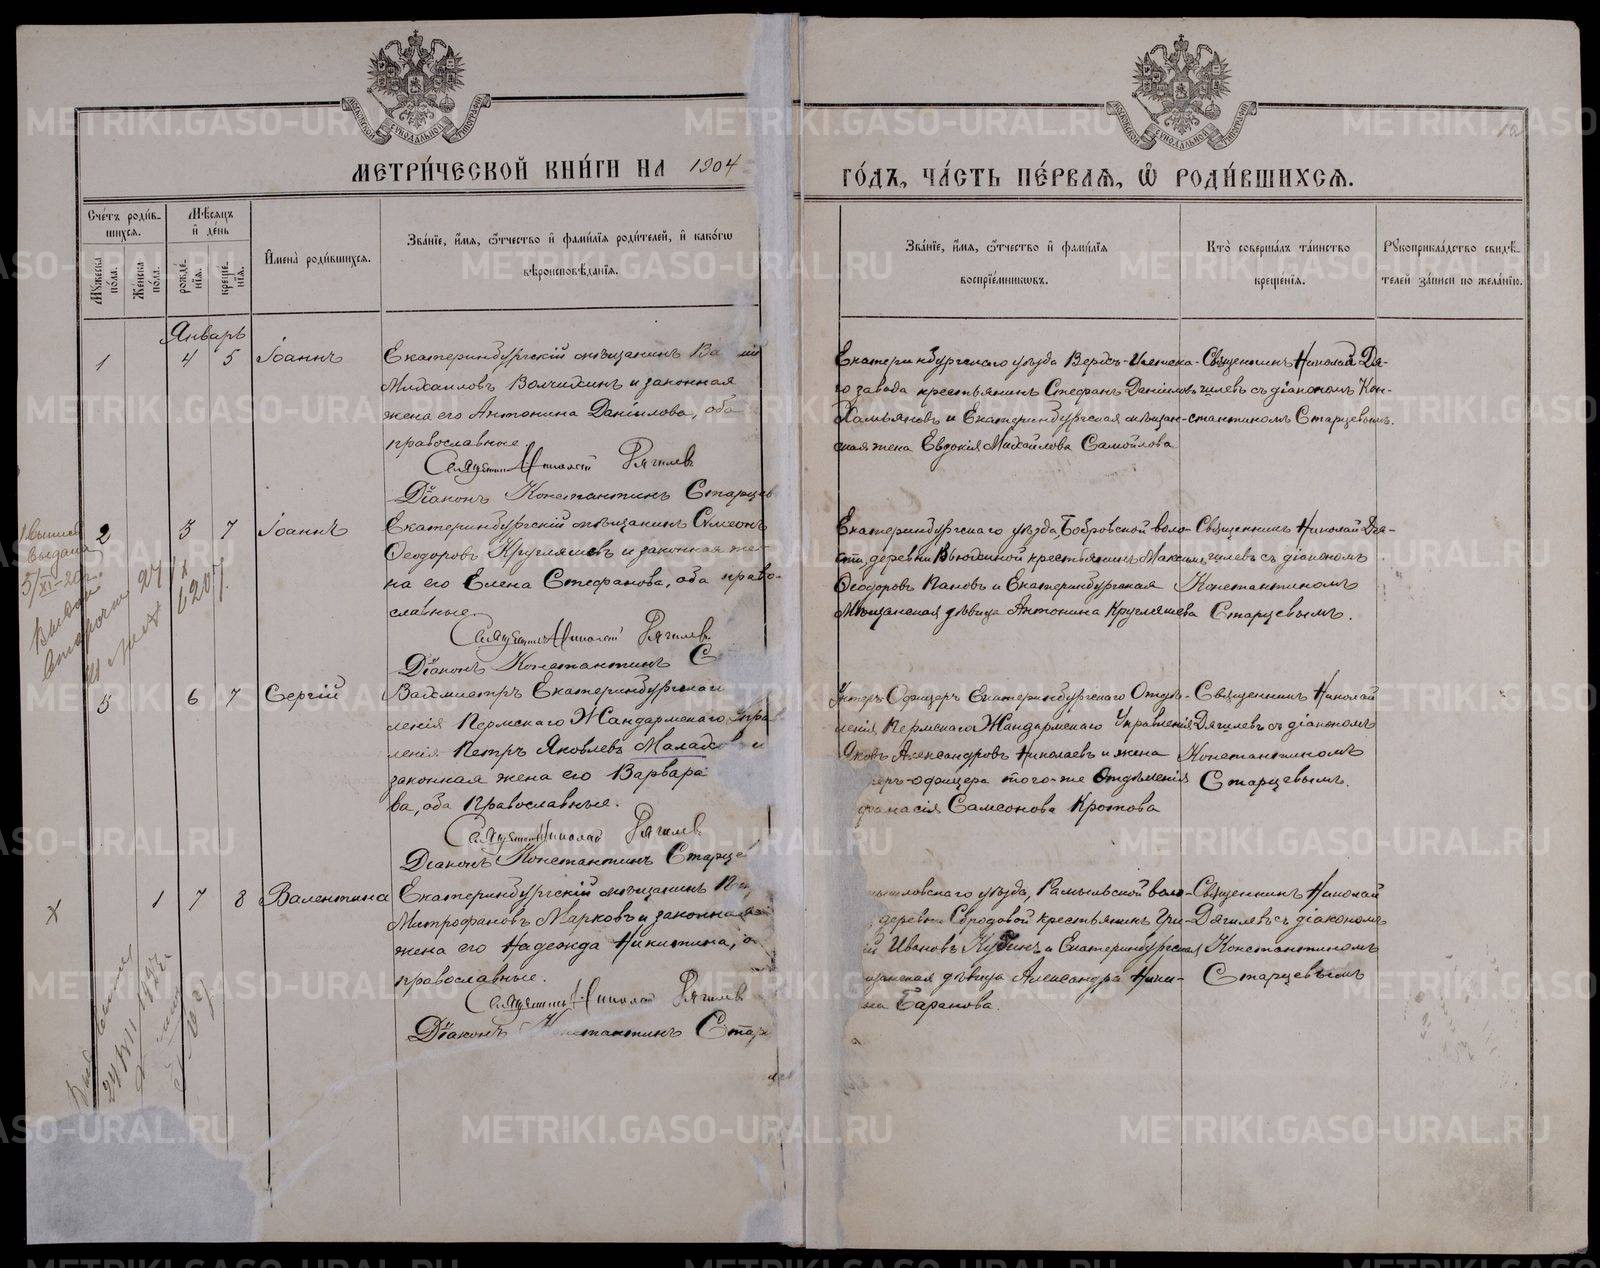 МЕТРИ́ЧЕСКОЙ КНИ́ГИ НА 1904
ГО́ДЪ, ЧА́СТЬ ПЕ́РВАЯ, Ѽ РОДИ́ВШИХСЯ.
Сче́тъ роди́в-
шихся.
Мѣсяцъ
и́ де́нь
Мꙋжеска по́ла.
Же́нска по́ла.
рожде-
нїя.
креще-
нїя.
И҆мена̀ роди́вшихся.
Зва́нїе, и҆́мя, ѻ҆́тчество и҆ фами́лїя роди́телей, и҆ како́гѡ
вѣроисповѣ́данїя.
Зва́нїе, и҆́мя, ѻ҆́тчество и҆ фами́лїя
воспрїе́мниковъ.
Кто̀ соверша́лъ та́инство
креще́нїя.
Рꙋкоприкла́дство свидѣ́-
телей за́писи по жела́нїю.
Январь
1 4 5 Іоаннъ
Екатеринбургскій мѣщанинъ Ва
Михаиловъ Волчихинъ и законная
жена его Антонина Данилова, оба
православные.
Священникъ Николай Дягилевъ
Діаконъ Константинъ Старцев
Екатеринбургскаго уѣзда Верхъ-Исетска-
го завода крестьянинъ Стефанъ Даніиловъ
и Екатеринбургская мѣщан-
ская жена Евдокія Михайлова Самойлова
Священникъ Николай Дя-
гилевъ съ діакономъ Кон-
стантиномъ Старцевымъ.
2 3 7 Іоаннъ
Екатеринбургскій мѣщанинъ Сѵмеонъ
Ѳеодоровъ Кругляшевъ и законная же-
на его Елена Стефанова, оба право-
славные.
Священникъ Николай Дягилевъ
Діаконъ Константинъ С
Екатеринбургскаго уѣзда, Бобровской воло-
сти, деревни крестьянинъ Максимъ
Ѳеодоровъ Пановъ и Екатеринбургская
Мѣщанская дѣвица Антонина Кругляшева
Священникъ Николай Дя-
гилевъ съ діакономъ
Константиномъ
Старцевымъ.
6 7 Сергій
Вахмистръ Екатеринбургскаго
ленія Пермскаго Жандармскаго Упра
ленія Петръ Яковлевъ Малахов и
законная жена его Варвара
ва, оба православные.
Священникъ Николай Дягилевъ
Діаконъ Константинъ Старце
Унтеръ-Офицеръ Екатеринбургскаго Отдѣ-
ленія Пермскаго Жандармскаго Управленія
Яковъ Александровъ Николаевъ и жена
еръ-офицера того-же Отдѣленія
фанасія Самсонова Кротова
Священникъ Николай
Дягилевъ съ діакономъ
Константиномъ
Старцевымъ.
1 7 8 Валентина
Екатеринбургскій мѣщанинъ
Митрофановъ Марковъ и законная
жена его Надежда Никитина, о
православные.
Священникъ Николай Дягилев
Діаконъ К нстантинъ Стар
ышловскаго уѣзда, воло-
деревни крестьянинъ Гри-
ій Ивановъ и Екатеринбургская
щанская дѣвица Александра Ники-
на Баранова.
Священникъ Николай
Дягилевъ съ діакономъ
Константиномъ
Старцевымъ